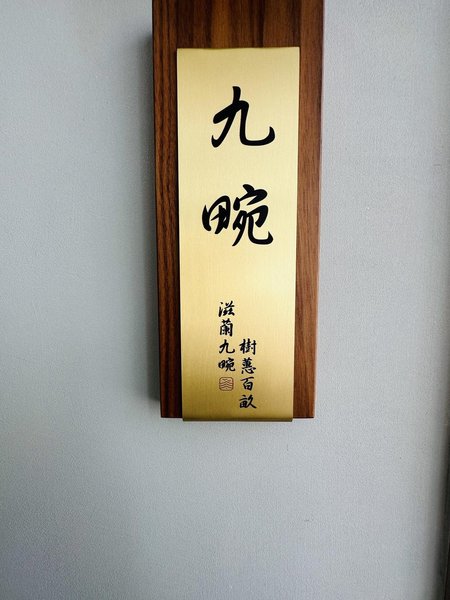 九畹
樹蕙百畝
滋蘭九畹